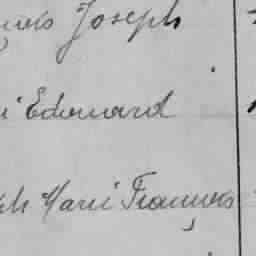 Joseph
Edouard
Marie François